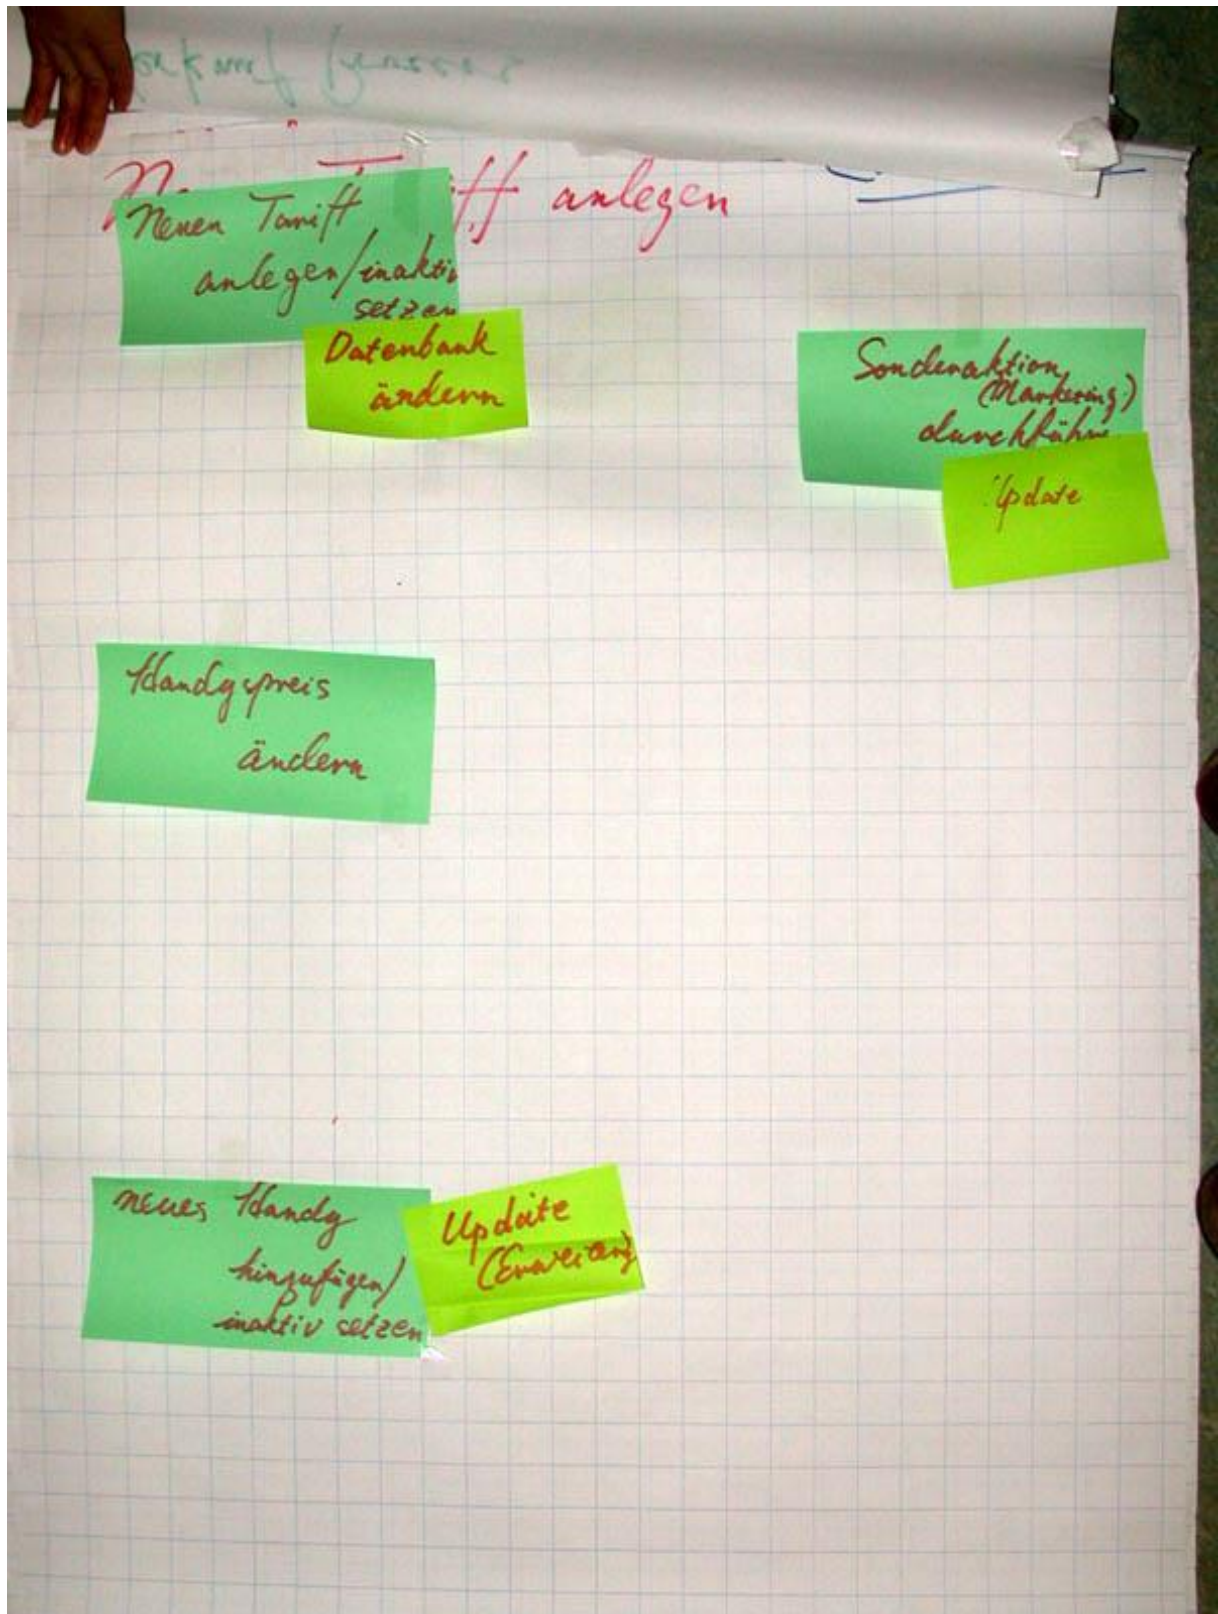 anlegen
Neuen Tariff
anlegen/inaktiv
setzen
Datenbank
ändern
Sonderaktion
(Marketing)
durchführ
Update
Handypreis
ändern
neues Handy
hinzufügen/
inaktiv setzen
Update
(Erweiterg)